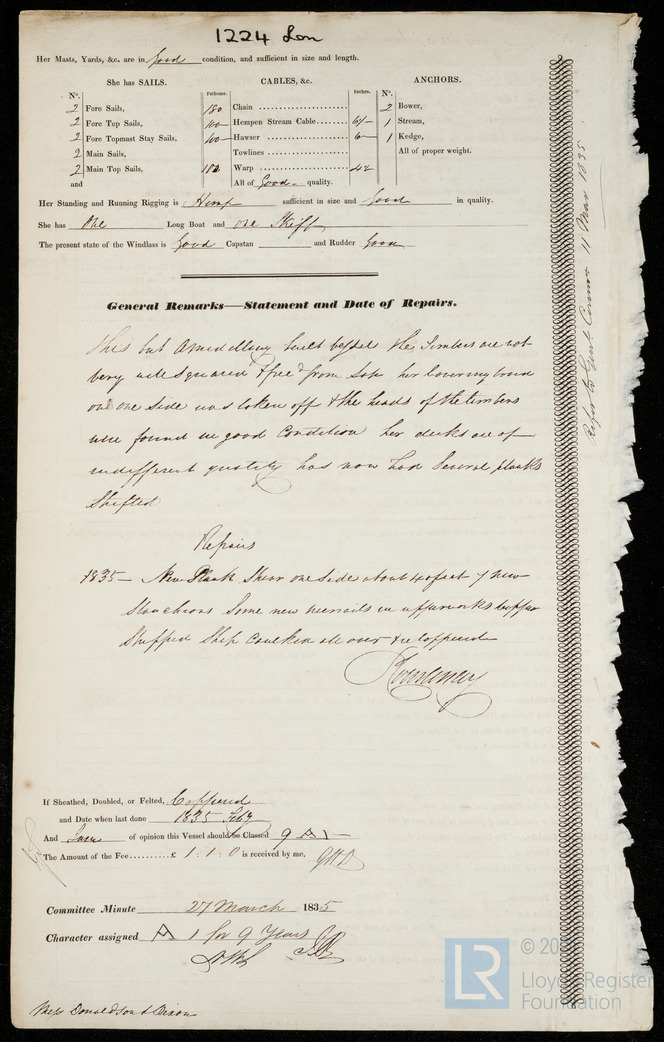 1224 Lon
Her Masts, Yards, &c. are in Good condition, and sufficient in size and length.
She has SAILS. CABLES, &c. ANCHORS.
No. Fathoms. Inches. No.
2 Fore Sails, 180 Chain 2 Bower,
2 Fore Top Sails, Hempen Stream Cable 1 Stream,
2 Fore Topmast Stay Sails, Hawser 6 1 Kedge,
2 Main Sails, Towlines All of proper weight.
2 Main Top Sails, Warp
and All of Good quality.
Her Standing and Running Rigging is Hemp sufficient in size and Good in quality.
She has One Long Boat and one Skiff
The present state of the Windlass is Good Capstan and Rudder Good
General Remarks—Statement and Date of Repairs.
This but a middling built vessel the Timbers are not
very well squared & free from sap her
on one side was taken off & the heads of the timbers
were found in good Condition her decks are of
indifferent quality has now had Several planks
Shifted
Repairs
1835 — New Plank Shear one Side about 40 feet 7 new
Stanchions Some new treenails in
Ship Caulked all over & re Coppered
If Sheathed, Doubled, or Felted, Coppered
and Date when last done 1835 Feby
And I am of opinion this Vessel should be Classed 9 A 1
The Amount of the Fee £ 1 : 1 : 0 is received by me,
Committee Minute 27 March 1835
Character assigned A 1 for 9 Years
Messrs Donaldson & Dixon
Refer to Genl Comee 11 Mar 1835
LR
Lloyd's Register
Foundation